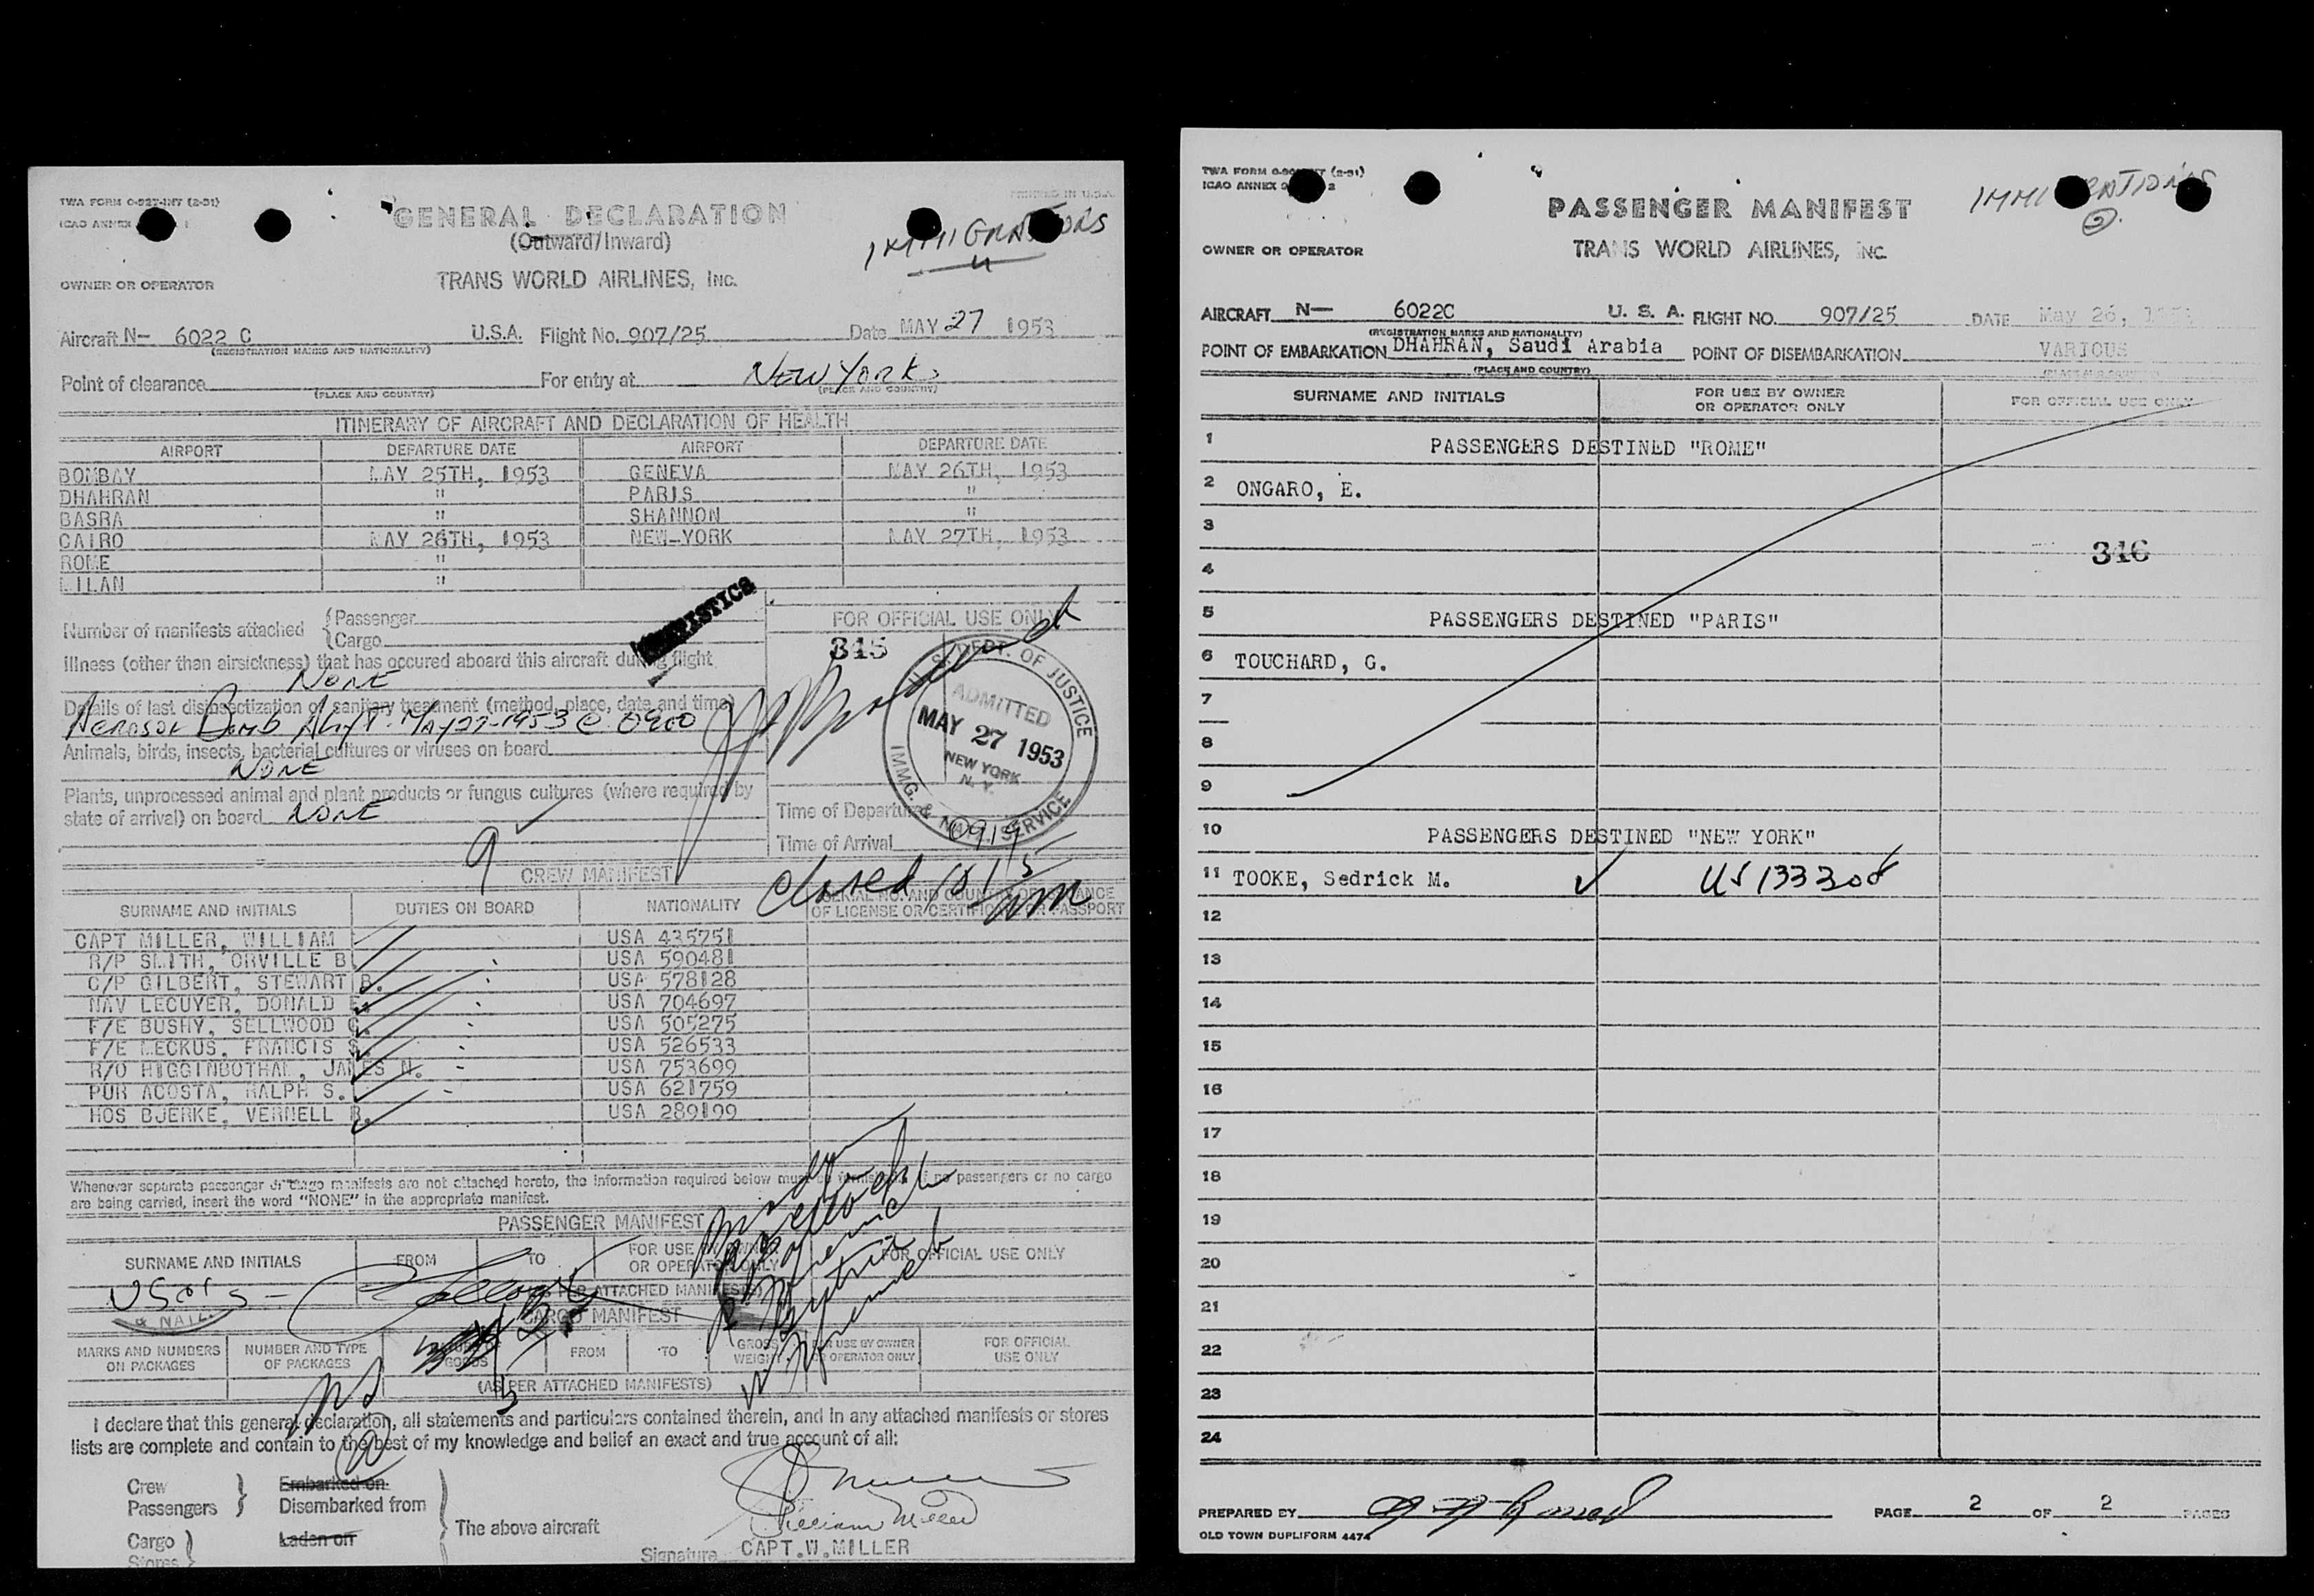 TWA FORM O-927-INT (2-51)
PRINTED IN U.S.A.
ICAO ANNEX
GENERAL DECLARATION
(Outward/Inward)
IMMIGRATIONS
OWNER OR OPERATOR
TRANS WORLD AIRLINES, INC.
Aircraft N- 6022 C U.S.A. Flight No. 907/25 Date MAY 27 1953
(REGISTRATION MARKS AND NATIONALITY)
Point of clearance For entry at NEW YORK
(PLACE AND COUNTRY) (PLACE AND COUNTRY)
ITINERARY OF AIRCRAFT AND DECLARATION OF HEALTH
AIRPORT DEPARTURE DATE AIRPORT DEPARTURE DATE
BOMBAY MAY 25TH, 1953 GENEVA MAY 26TH, 1953
DHAHRAN " PARIS "
BASRA " SHANNON "
CAIRO MAY 26TH, 1953 NEW-YORK MAY 27TH, 1953
ROME "
MILAN "
Number of manifests attached {Passenger
{Cargo
FOR OFFICIAL USE ONLY
345
Illness (other than airsickness) that has occured aboard this aircraft during flight
NONE
Details of last disinsectization or sanitary treatment (method, place, date and time)
AEROSOL BOMB MAY 27-1953 @ 0900
Animals, birds, insects, bacterial cultures or viruses on board
NONE
Plants, unprocessed animal and plant products or fungus cultures (where required by
state of arrival) on board NONE
U.S. DEPT. OF JUSTICE
ADMITTED
MAY 27 1953
NEW YORK
N.Y.
IMMG. & NATZ. SERVICE
Time of Departure
Time of Arrival 0919
9
closed 10 15 am
CREW MANIFEST
SURNAME AND INITIALS DUTIES ON BOARD NATIONALITY SERIAL NO. AND COUNTRY OF ISSUANCE
OF LICENSE OR CERTIFICATE OR PASSPORT
CAPT MILLER, WILLIAM USA 435751
R/P SMITH, ORVILLE B USA 590481
C/P GILBERT, STEWART B. USA 578128
NAV LECUYER, DONALD E. USA 704697
F/E BUSHY, SELLWOOD C. USA 505275
F/E MECKUS, FRANCIS S. USA 526533
R/O HIGGINBOTHAM, JAMES N. USA 753699
PUR ACOSTA, RALPH S. USA 621759
HOS BJERKE, VERNELL R. USA 289199
Whenever separate passenger or cargo manifests are not attached hereto, the information required below must be furnished. If no passengers or no cargo
are being carried, insert the word "NONE" in the appropriate manifest.
PASSENGER MANIFEST
SURNAME AND INITIALS FROM TO FOR USE BY OWNER
OR OPERATOR ONLY FOR OFFICIAL USE ONLY
(AS PER ATTACHED MANIFESTS)
& NATZ.
CARGO MANIFEST
MARKS AND NUMBERS
ON PACKAGES NUMBER AND TYPE
OF PACKAGES NATURE OF
GOODS FROM TO GROSS
WEIGHT FOR USE BY OWNER
OR OPERATOR ONLY FOR OFFICIAL
USE ONLY
(AS PER ATTACHED MANIFESTS)
I declare that this general declaration, all statements and particulars contained therein, and in any attached manifests or stores
lists are complete and contain to the best of my knowledge and belief an exact and true account of all:
Crew
Passengers } Embarked on
Disembarked from
Cargo
Stores } Laden on
The above aircraft
William Miller
Signature CAPT.W.MILLER
TWA FORM (2-51)
ICAO ANNEX 2
PASSENGER MANIFEST
IMMIGRATIONS
2
OWNER OR OPERATOR
TRANS WORLD AIRLINES, INC.
AIRCRAFT N- 6022C U. S. A. FLIGHT NO. 907/25 DATE May 26, 1953
(REGISTRATION MARKS AND NATIONALITY)
POINT OF EMBARKATION DHAHRAN, Saudi Arabia POINT OF DISEMBARKATION VARIOUS
(PLACE AND COUNTRY) (PLACE AND COUNTRY)
SURNAME AND INITIALS FOR USE BY OWNER
OR OPERATOR ONLY FOR OFFICIAL USE ONLY
1 PASSENGERS DESTINED "ROME"
2 ONGARO, E.
3
346
4
5 PASSENGERS DESTINED "PARIS"
6 TOUCHARD, G.
7
8
9
10 PASSENGERS DESTINED "NEW YORK"
11 TOOKE, Sedrick M. US 133308
12
13
14
15
16
17
18
19
20
21
22
23
24
PREPARED BY PAGE 2 OF 2 PAGES
OLD TOWN DUPLIFORM 4474